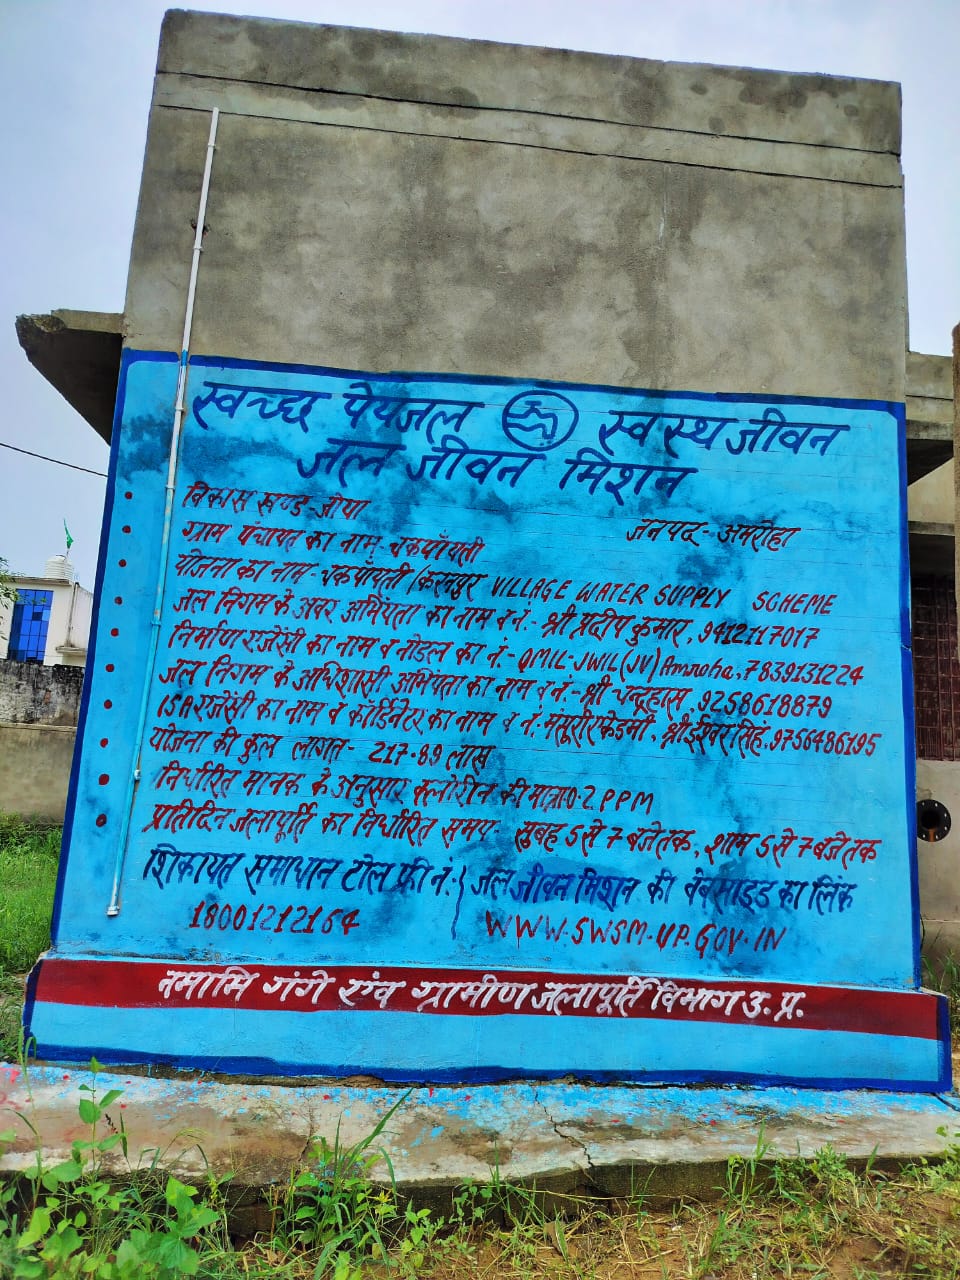 स्वच्छ पेयजल स्वस्थ जीवन
जल जीवन मिशन
विकास खण्ड-जोया जनपद-अमरोहा
ग्राम पंचायत का नाम-चकपाँयती
योजना का नाम-चकपाँयती/करनपुर VILLAGE WATER SUPPLY SCHEME
जल निगम के अवर अभियंता का नाम व नं.- श्री प्रदीप कुमार, 9412117017
निर्माण एजेंसी का नाम व नोडल का नं.- QMIL-JWIL(JV)Amroha,7839131224
जल निगम के अधिशासी अभियंता का नाम व नं.- श्री चन्द्रहास, 9258618879
ISA एजेंसी का नाम व कॉर्डिनेटर का नाम व नं. मंसूरी एकेडमी, श्री ईश्वर सिंह, 9756486195
योजना की कुल लागत- 217.89 लाख
निर्धारित मानक के अनुसार क्लोरीन की मात्रा 0.2 PPM
प्रतिदिन जलापूर्ति का निर्धारित समय- सुबह 5 से 7 बजे तक, शाम 5 से 7 बजे तक
शिकायत समाधान टोल फ्री नं.- जल जीवन मिशन की वेबसाइड का लिंक
18001212164 WWW.SWSM-UP.GOV.IN
नमामि गंगे एंव ग्रामीण जलापूर्ति विभाग उ.प्र.